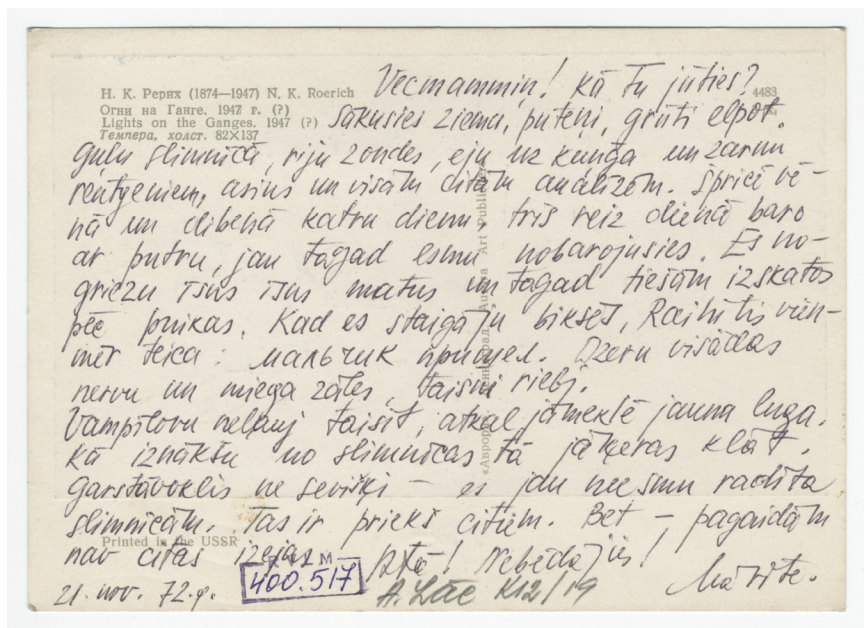 Н. К. Рерих (1874—1947) N. K. Roerich
Огни на Ганге. 1947 г. (?)
Lights on the Ganges. 1947 (?)
Темпера, холст. 82×137
4483
Vecmammiņ! Kā tu jūties?
Sākusies ziema, puteņi, grūti elpot.
Guļu slimnīcā, riju zondes, eju uz kuņģa un zarnu
rentgeniem, asins un visām citām analīzēm. Špricē vē-
nā un dibenā katru dienu, trīs reiz dienā baro
ar putru, jau tagad esmu nobarojusies. Es no-
griezu īsus īsus matus un tagad tiešām izskatos
pēc puikas. Kad es staigāju biksēs, Raibītis vien-
mēr teica: мальчик пришел. Dzeru visādas
nervu un miega zāles, taisni riebj.
Vampilovu neļauj taisīt, atkal jāmeklē jauna luga.
Kā iznākšu no slimnīcas tā jāķeras klāt.
Garstāvoklis ne sevišķi — es jau neesmu radīta
slimnīcām. Tas ir prieks citiem. Bet — pagaidām
nav citas izejas. Atā! Nebēdājies!
Mārīte.
21. nov. 72.g.
«Аврора» Ленинград Aurora Art Publishers
Printed in the USSR
R T M
400.517
A. Lāce K12/19